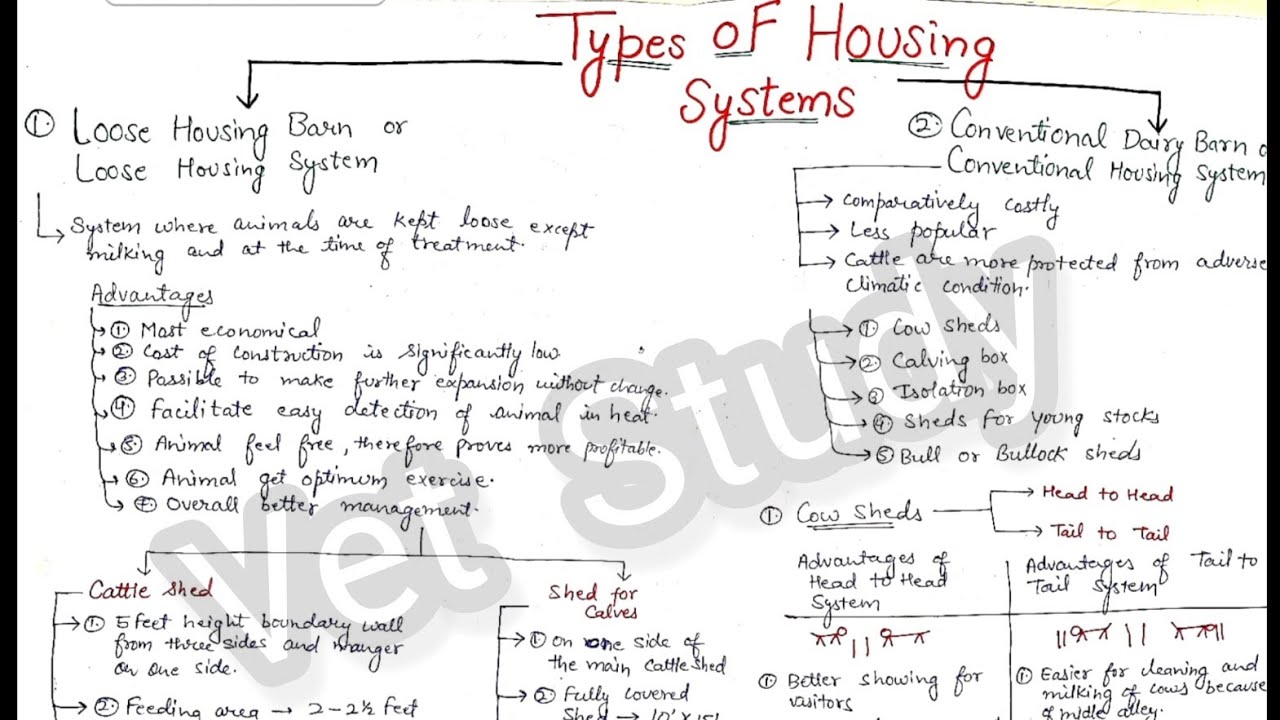 Types of Housing
Systems
① Loose Housing Barn or
Loose Housing System
System where animals are kept loose except
milking and at the time of treatment.
Advantages
① Most economical
② Cost of construction is significantly low
③ Possible to make further expansion without change.
④ Facilitate easy detection of animal in heat.
⑤ Animal feel free, therefore proves more profitable.
⑥ Animal get optimum exercise.
⑦ Overall better management.
Cattle shed
① 5 feet height boundary wall
from three sides and manger
on one side.
② Feeding area → 2-2½ feet
Shed for
Calves
① On one side of
the main cattle shed
② Fully covered
Shed → 10' x 15'
② Conventional Dairy Barn o
Conventional Housing System
Comparatively costly
Less popular
Cattle are more protected from adverse
climatic condition.
① Cow sheds
② Calving box
③ Isolation box
④ Sheds for young stocks
⑤ Bull or Bullock sheds
① Cow Sheds
Head to Head
Tail to Tail
Advantages of
Head to Head
System
① Better showing for
visitors
Advantages of Tail to
Tail System
① Easier for cleaning and
milking of cows because
of midle alley.
Vet Study